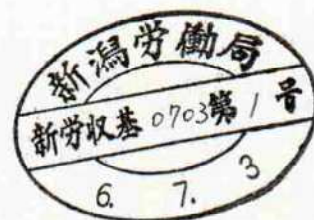 新潟労働局
新労収基0703第1号
6. 7. 3